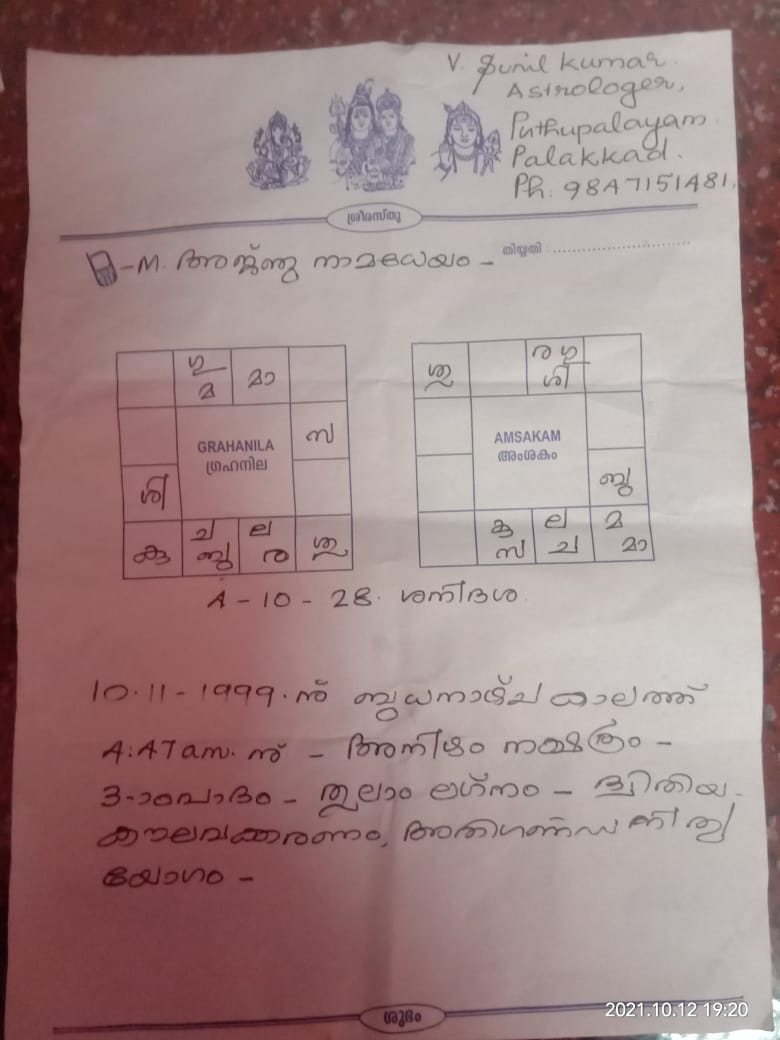 V. Sunil Kumar.
Astrologer,
Puthupalayam.
Palakkad.
Ph: 9847151481.
ശ്രീരസ്തു
തിയ്യതി : ...............................
- M. അഞ്ജു നാമധേയം -
ഗു
മ
മാ
സ
GRAHANILA
ഗ്രഹനില
ശി
കു
ച
ബു
ല
ര
ശു
ശു
ര ഗു
ശി
AMSAKAM
അംശകം
ബു
കു
സ
ല
ച
മ
മാ
4 - 10 - 28. ശനിദശ
10.11-1999.ന് ബുധനാഴ്ച കാലത്ത്
4:47am. ന് - അനിഴം നക്ഷത്രം -
3-ാംപാദം - തുലാം ലഗ്നം - ദ്വിതിയ -
കൗലവക്കരണം, അതിഗണ്ഡ നിത്യ
യോഗം -
ശുഭം
2021.10.12 19:20